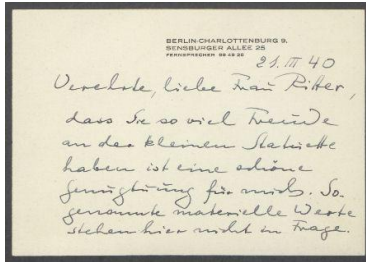 BERLIN-CHARLOTTENBURG 9,
SENSBURGER ALLEE 25
FERNSPRECHER
21. III 40
Verehrte, liebe Frau Ritter,
dass Sie so viel Freude
an der kleinen Statuette
haben ist eine schöne
Genugtuung für mich. So
genannte materielle Werte
stehen hier nicht in Frage.